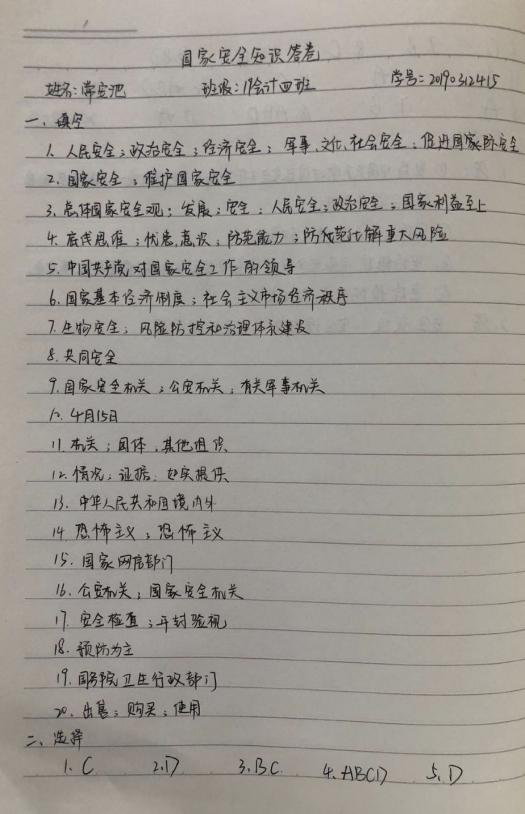 国家安全知识答卷
姓名:常安池 班级:19会计四班 学号:20190312415
一、填空
1. 人民安全;政治安全;经济安全;军事、文化、社会安全;促进国家际安全
2. 国家安全;维护国家安全
3. 总体国家安全观;发展;安全;人民安全;政治安全;国家利益至上
4. 底线思维;忧患意识;防范能力;防范化解重大风险
5. 中国共产党对国家安全工作的领导
6. 国家基本经济制度;社会主义市场经济秩序
7. 生物安全;风险防控和治理体系建设
8. 共同安全
9. 国家安全机关;公安机关;有关军事机关
10. 4月15日
11. 机关;团体;其他组织
12. 情况;证据;如实提供
13. 中华人民共和国境内外
14. 恐怖主义;恐怖主义
15. 国家网信部门
16. 公安机关;国家安全机关
17. 安全检查;开封验视
18. 预防为主
19. 国务院卫生行政部门
20. 出售;购买;使用
二、选择
1. C 2. D 3. BC 4. ABCD 5. D